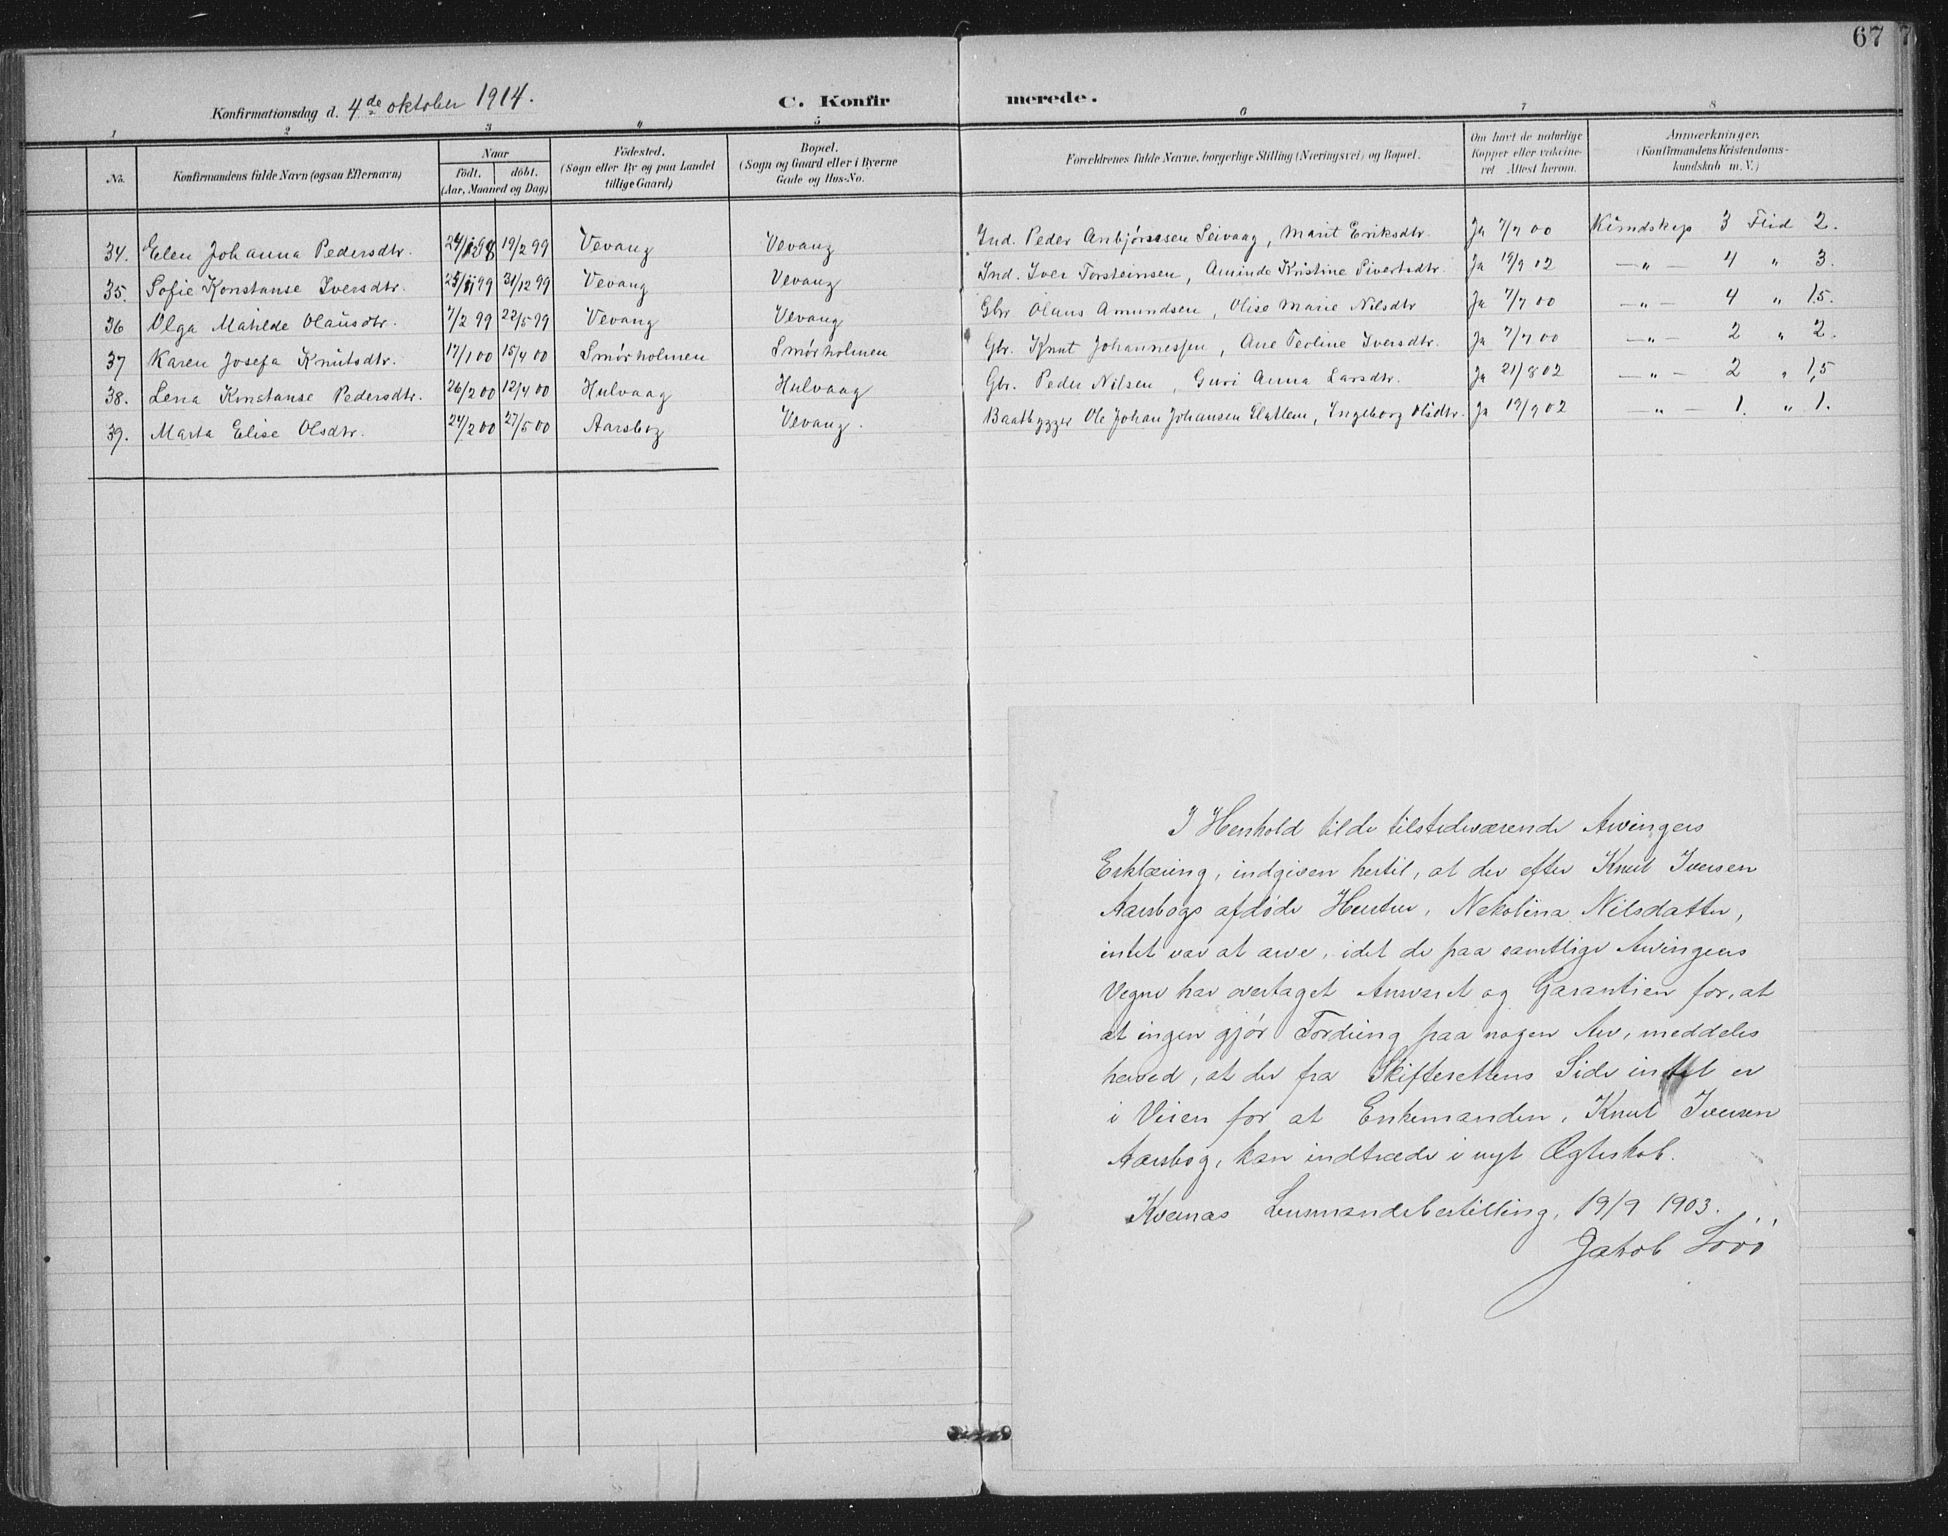 67 7
Konfirmationsdag d. 4de oktober 1914. C. Konfirmerede.
1 2 3 4 5 6 7 8
No. Konfirmandens fulde Navn (ogsaa Efternavn) Naar født. døbt. (Aar, Maaned og Dag) Fødested. (Sogn eller By og paa Landet tillige Gaard) Bopæl. (Sogn og Gaard eller i Byerne Gade og Hus-No. Forældrenes fulde Navne, borgerlige Stilling (Næringsvei) og Bopæl. Om havt de naturlige Kopper eller vakcineret Attest herom. Anmærkninger. (Konfirmandens Kristendomskundskab m. V.)
34. Elen Johanna Pedersdtr. 24/12 98 19/2 99 Vevang Vevang Ind. Peder Anbjørnsen Seivaag, Marit Eriksdtr. Ja 7/7 00 Kundskap 3 Flid 2.
35. Sofie Konstanse Iversdtr. 25/11 99 31/12 99 Vevang Vevang Ind. Iver Torsteinsen, Aminde Kristine Sivertsdtr. Ja 19/9 02 —„— 4 „ 3.
36 Olga Matilde Olausdtr. 7/2 99 22/5 99 Vevang Vevang Gbr Olaus Amundsen, Olise Marie Nilsdtr Ja 7/7 00 —„— 4 „ 1,5.
37 Karen Josefa Knutsdtr. 17/1 00 15/4 00 Smørholmen Smørholmen Gbr. Knut Johannessen, Ane Teoline Iversdtr. Ja 7/7 00 —„— 2 „ 2.
38. Lena Konstanse Pedersdtr. 26/2 00 12/4 00 Hulvaag Hulvaag Gbr. Peder Nilsen, Guri Anna Larsdtr. Ja 21/8 02 —„— 2 „ 1,5
39. Marta Elise Olsdtr. 24/2 00 27/5 00 Aarsbog Vevang. Baatbygger Ole Johan Johansen Slatlem, Ingeborg Olsdtr. Ja 19/9 02 „— 1. „ 1.
I Henhold til de tilstedeværende Arvingers
Erklæring, indgiven hertil, at der efter Knut Iversen
Aarsbogs afdøde Hustru, Nekolina Nilsdatter,
intet var at arve, idet de paa samtlige Arvingers
Vegne har overtaget Ansvaret og Garantien for, at
at ingen gjør Fordring paa nogen Arv, meddeles
herved, at der fra Skifterettens Side intet er
i Veien for at Enkemanden, Knut Iversen
Aarsbog, kan indtræde i nyt Ægteskab.
Kvernæs Lensmandsbestilling, 19/9 1903.
Jakob